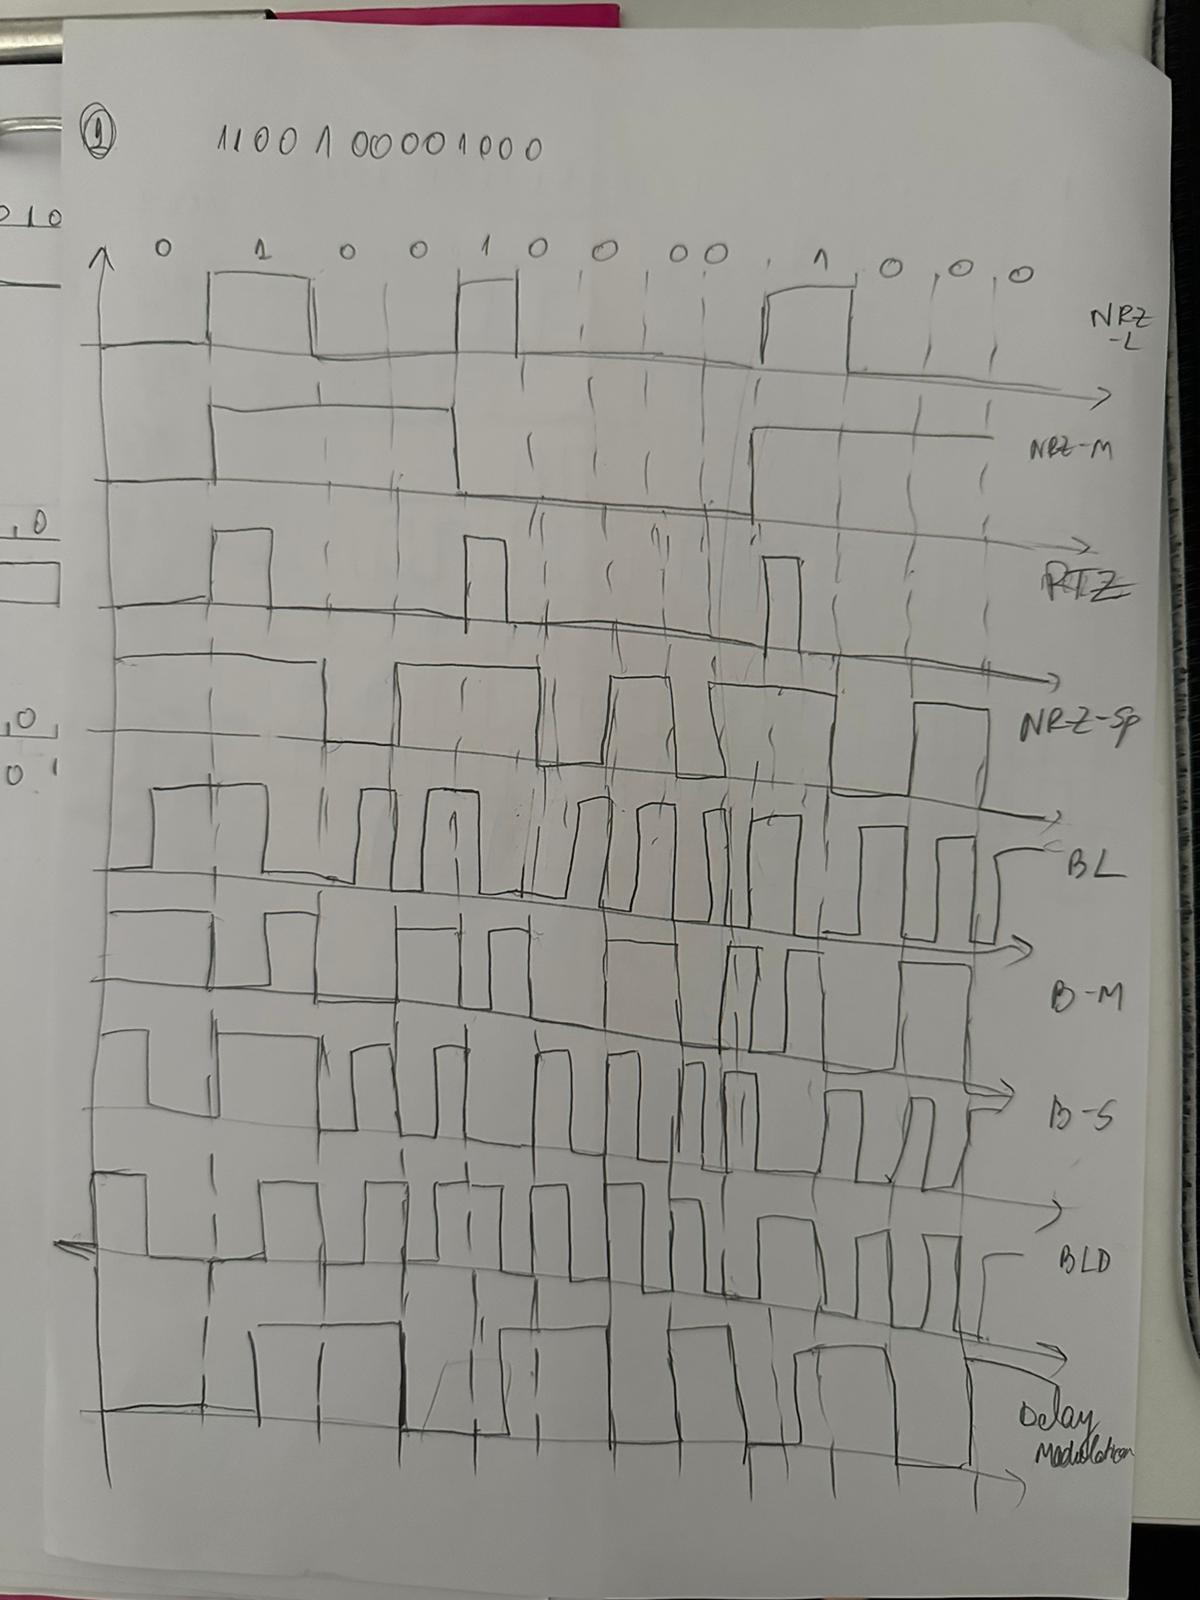 ① 1100100001000
0 1 0 0 1 0 0 0 0 1 0 0 0
NRZ
-L
010
NRZ-M
,0
RTZ
NRZ-Sp
,0,
0 1
BL
B-M
B-S
BLD
Delay
Modulation